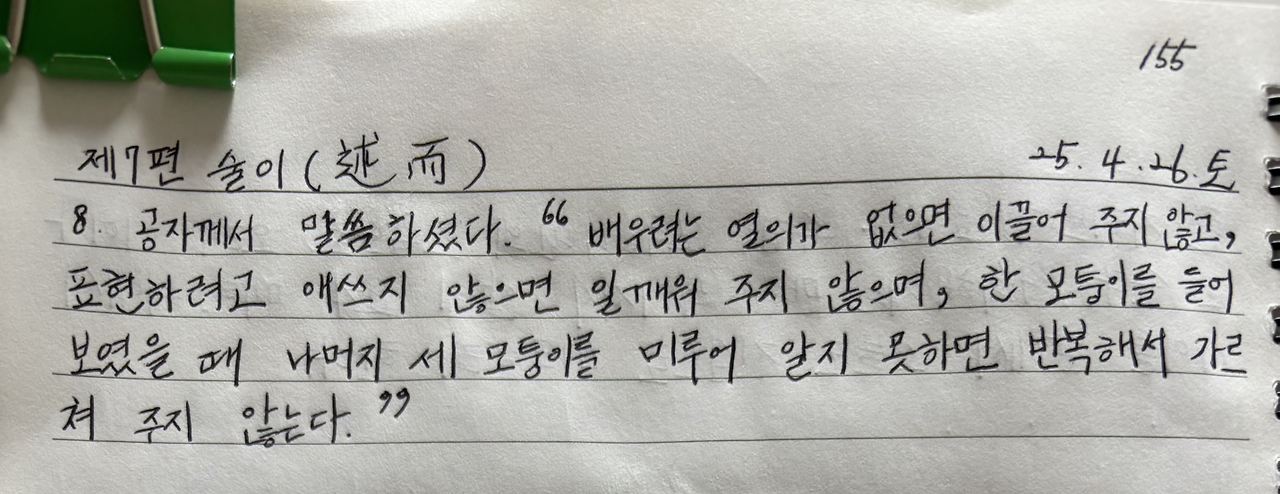 155
제7편 술이(述而) 25.4.26.토
8. 공자께서 말씀하셨다. "배우려는 열의가 없으면 이끌어 주지 않고,
표현하려고 애쓰지 않으면 일깨워 주지 않으며, 한 모퉁이를 들어
보였을 때 나머지 세 모퉁이를 미루어 알지 못하면 반복해서 가르
쳐 주지 않는다."